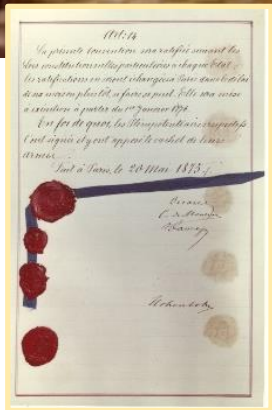 Art: 14
La présente Convention sera ratifiée suivant les
lois constitutionnelles particulières à chaque Etat;
les ratifications en seront échangées à Paris dans le délai
de six mois ou plus tôt, si faire se peut. Elle sera mise
à exécution à partir du 1er Janvier 1876.
En foi de quoi, les Plénipotentiaires respectifs
l'ont signée et y ont apposé le cachet de leurs
armes.
Fait à Paris, le 20 Mai 1875.
Decazes
C. de Meaux
Hohenlohe